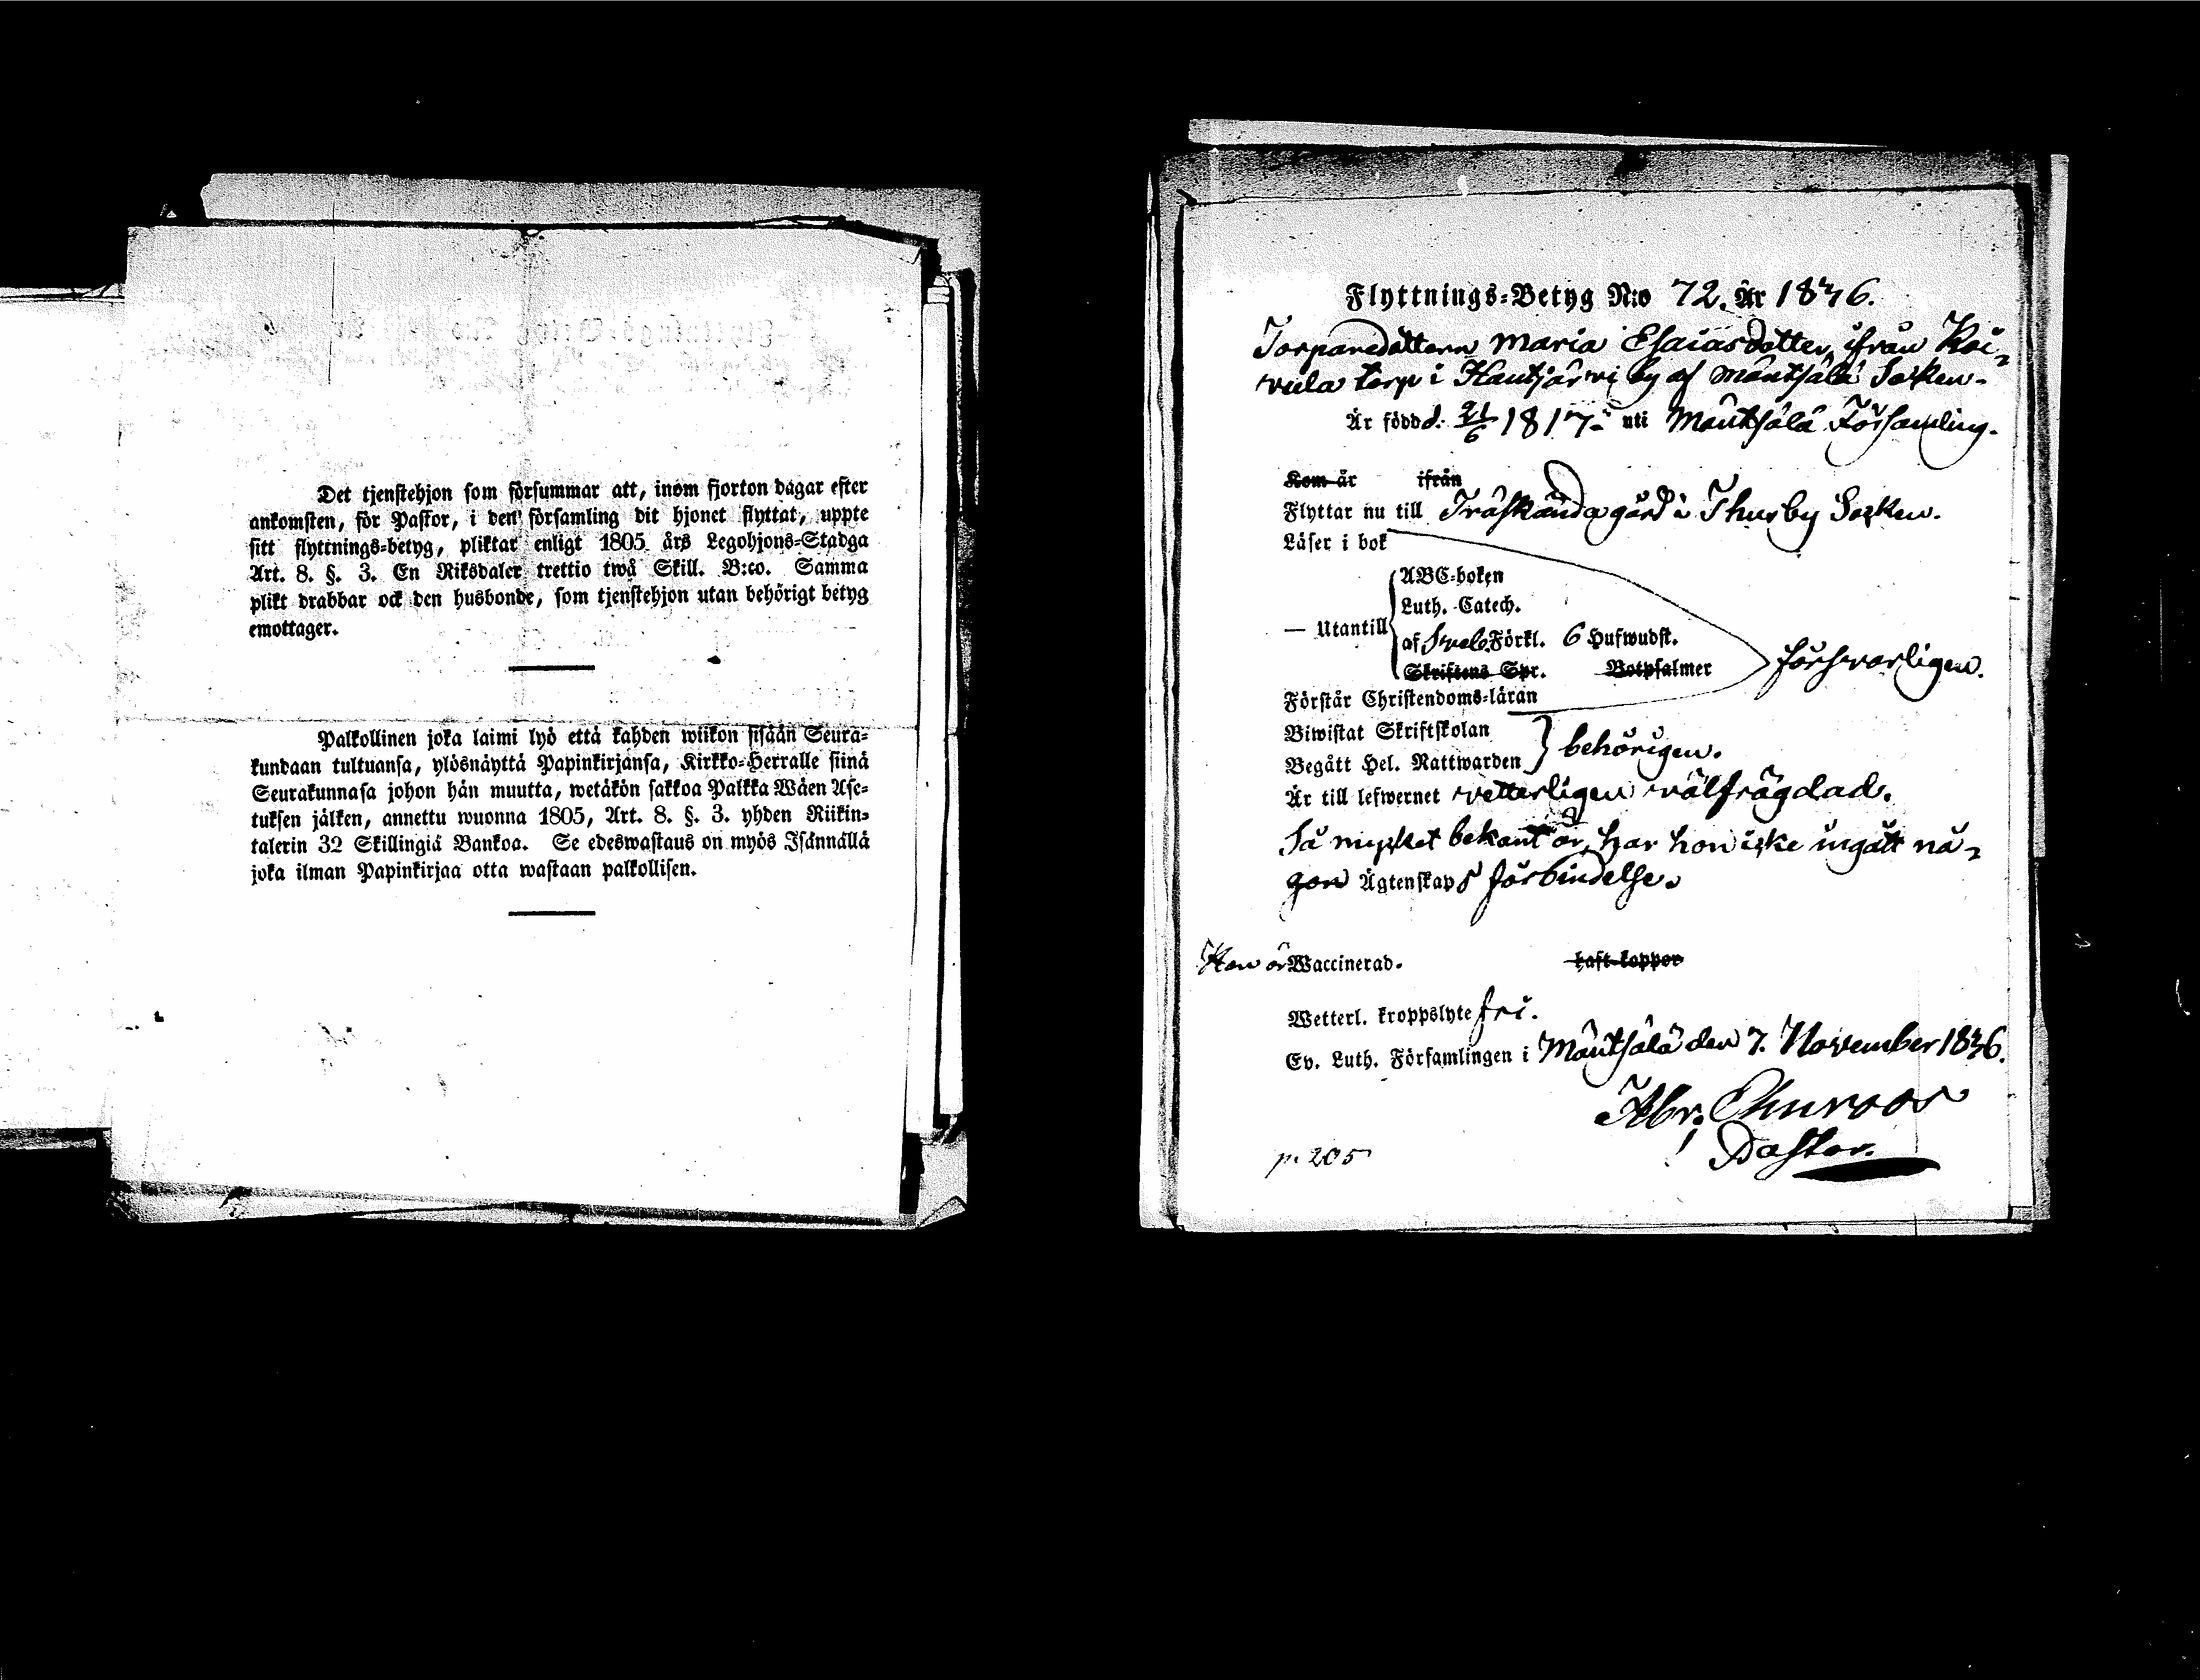 Det tjenstehjon som försummar att, inom fjorton dagar efter
ankomsten, för Pastor, i den församling dit hjonet flyttat, uppte
sitt flyttnings-betyg, pliktar enligt 1805 års Legohjons-Stadga
Art. 8. §. 3. En Riksdaler trettio twå Skill. B:co. Samma
plikt drabbar ock den husbonde, som tjenstehjon utan behörigt betyg
emottager.
Palkollinen joka laimi lyö että kahden wiikon sisään Seura-
kundaan tultuansa, ylösnäyttä Papinkirjansa, Kirkko-Herralle siinä
Seurakunnasa johon hän muutta, wetäkön sakkoa Palkka Wäen Ase-
tuksen jälken, annettu wuonna 1805, Art. 8. §. 3. yhden Riikin-
talerin 32 Skillingiä Bankoa. Se edeswastaus on myös Isännällä
joka ilman Papinkirjaa otta wastaan palkollisen.
Flyttnings-Betyg N:o 72. År 1846.
Torparedottern Maria Esaiasdotter, ifrån Koi-
vula torp i Hautjärwi by af Mäntsälä Socken.
Är född d. 21/6 1817. uti Mäntsälä Församling.
Kom år ifrån
Flyttar nu till Träskända gård i Thusby Socken.
Läser i bok
— Utantill
ABC-boken
Luth. Catech.
af Sveb. Förkl. 6 Hufwudst.
Skriftens Spr. Botpsalmer
försvarligen.
Förstår Christendoms-läran
Biwistat Skriftskolan
Begått Hel. Nattwarden
behörigen.
Är till lefwernet vetterligen välfrägdad.
Så mycket bekant är, har hon icke ingått nå-
gon Ägtenskaps förbindelse.
Hon är Waccinerad. haft koppor
Wetterl. kroppslyte fri.
Ev. Luth. Församlingen i Mäntsälä den 7. November 1846.
Abr.
Pastor.
p. 205